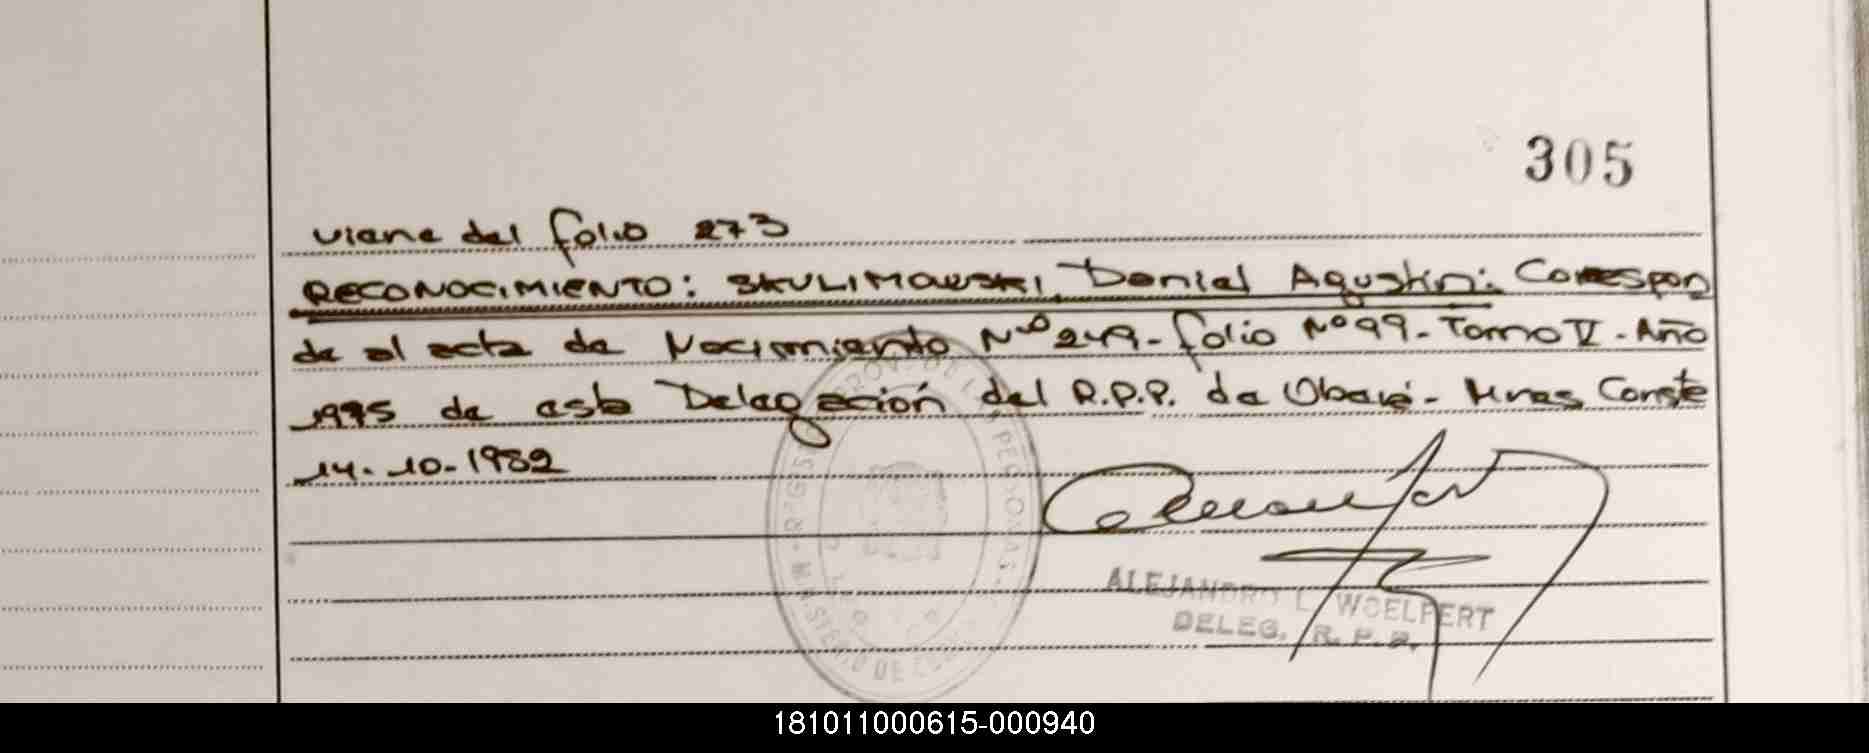 305
viene del folio 273
RECONOCIMIENTO: SKULIMOWSKI, Daniel Agustin: Correspon
de al acta de Nacimiento Nº 249- folio Nº 99- Tomo V - Año
1975 de esta Delegación del R.P.P. de Oberá- Mnes Conste
14-10-1982
ALEJANDRO L. WOELFERT
DELEG. R. P. P.
181011000615-000940